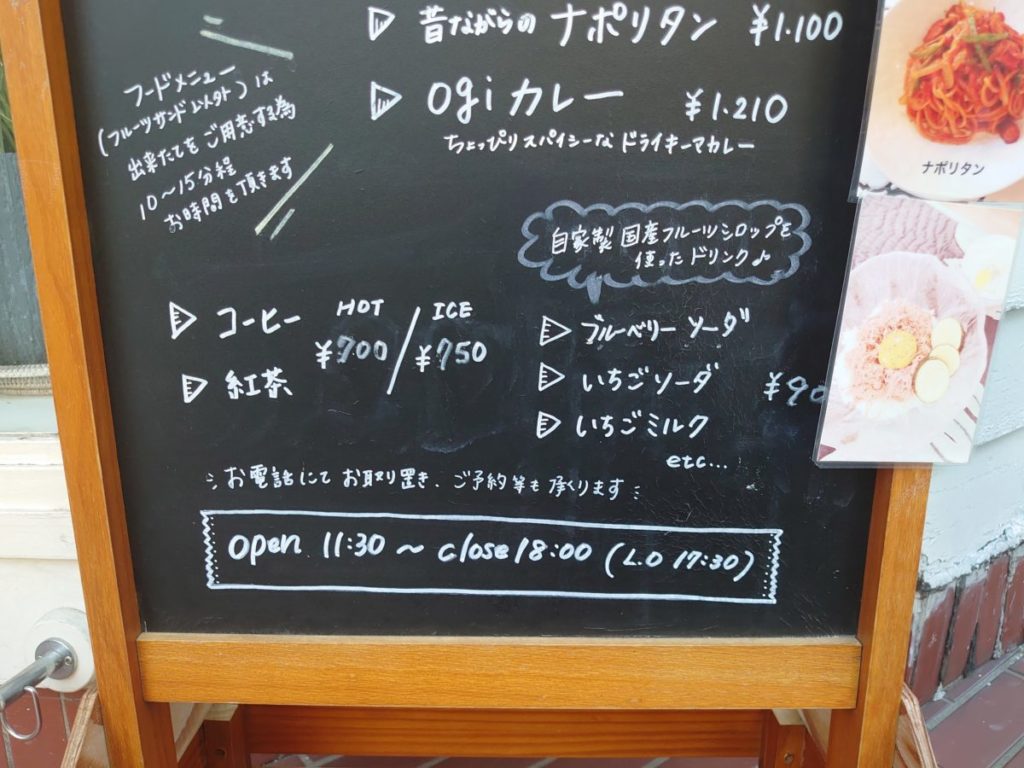 昔ながらの ナポリタン ¥1.100
ogi カレー ¥1.210
ちょっぴりスパイシーな ドライキーマカレー
フードメニュー
(フルーツサンド以外)は
出来たてをご用意する為
10〜15分程
お時間を頂きます
自家製 国産フルーツシロップを
使ったドリンク♪
HOT ICE
コーヒー
¥700 / ¥750
紅茶
ブルーベリー ソーダ
いちごソーダ ¥90
いちごミルク
etc...
お電話にて お取り置き、ご予約等も承ります
open 11:30 〜 close 18:00 (L.O 17:30)
ナポリタン